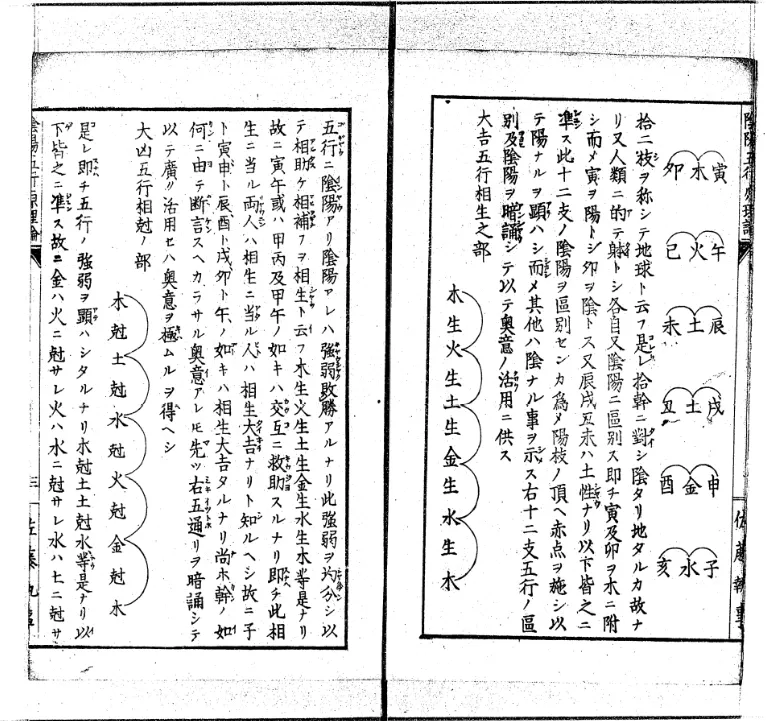 陰陽五行原理論
寅木卯
午火巳
辰土未
戌土丑
申金酉
子水亥
拾二枝ヲ称シテ地球ト云フ是レ拾幹ニ對シ陰タリ地タルカ故ナ
リ又人類ニ的テ躰トシ各自又陰陽ニ區别ス即チ寅及卯ヲ木ニ附
シ而メ寅ヲ陽トシ卯ヲ陰トス又辰戌丑未ハ土性ナリ以下皆之ニ
準ス此十二支ノ陰陽ヲ區别センカ為メ陽枝ノ頂ヘ赤点ヲ施シ以
テ陽ナルヲ顕ハシ而メ其他ハ陰ナル事ヲ示ス右十二支五行ノ區
别及陰陽ヲ暗誦シテ以テ奥意ノ活用ニ供ス
大吉五行相生之部
木生火生土生金生水生木
五行ニ陰陽アリ陰陽アレハ強弱敗勝アルナリ此強弱ヲ灼分シ以
テ相助ケ相補フヲ相生ト云フ木生火生土生金生水生木等是ナリ
故ニ寅午或ハ甲丙及甲午ノ如キハ交互ニ救助スルナリ即チ此相
生ニ当ル両人ハ相生ニ当ル人ハ相生大吉ナリト知ルヘシ故ニ子
ト寅申ト辰酉ト戌卯ト午ノ如キハ相生大吉タルナリ尚ホ幹ノ如
何ニ由テ断言スヘカラサル奥意アレ𪜈先ツ右五通リヲ暗誦シテ
以テ廣ク活用セハ奥意ヲ極ムルヲ得ヘシ
大凶五行相尅ノ部
木尅土尅水尅火尅金尅木
是レ即チ五行ノ強弱ヲ顕ハシタルナリ木尅土土尅水等是ナリ以
下皆之ニ準ス故ニ金ハ火ニ尅サレ火ハ水ニ尅サレ水ハ土ニ尅サ
陰陽五行原理論
三
佐藤